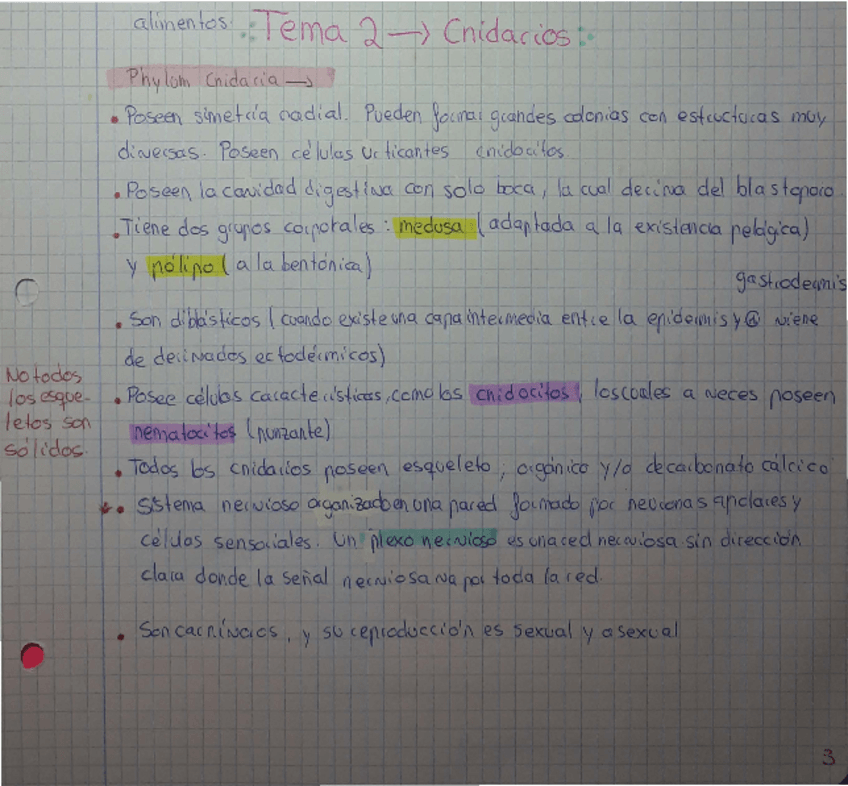 alimentos.
Tema 2 → Cnidarios
Phylum Cnidaria →
• Poseen simetría radial. Pueden formar grandes colonias con estructuras muy
diversas. Poseen células urticantes cnidocitos
• Poseen la cavidad digestiva con solo boca, la cual deriva del blastoporo.
• Tiene dos grupos corporales: medusa (adaptada a la existencia pelágica)
y pólipo (a la bentónica)
gastrodermis
• Son diblásticos (cuando existe una capa intermedia entre la epidermis y @ viene
de derivados ectodérmicos)
• Posee células características, como los cnidocitos, los cuales a veces poseen
nematocitos (punzante)
No todos
los esque-
letos son
sólidos.
• Todos los cnidarios poseen esqueleto, orgánico y/o de carbonato cálcico
• Sistema nervioso organizado en una pared formado por neuronas apolares y
células sensoriales. Un plexo nervioso es una red nerviosa sin dirección
clara donde la señal nerviosa va por toda la red.
• Son carnívoros, y su reproducción es sexual y asexual
3